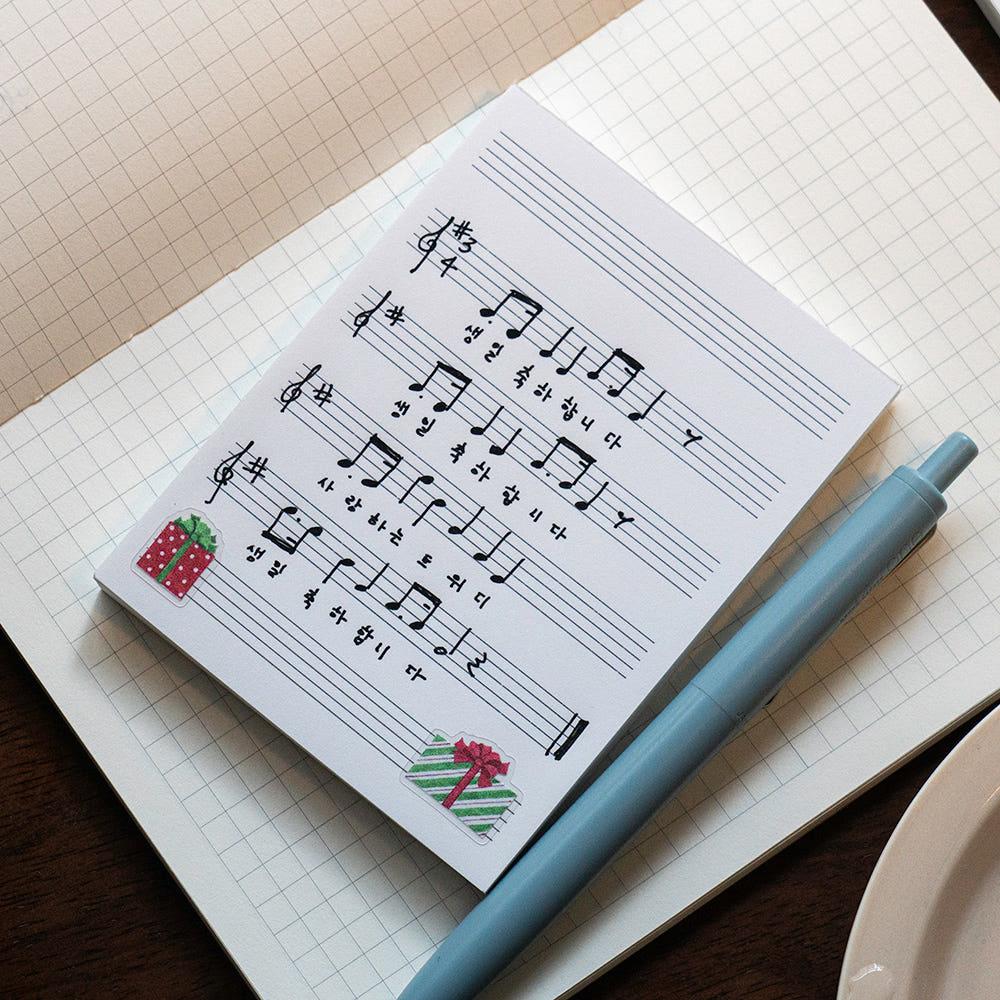 3
4
생일 축하합니다
생일 축하합니다
사랑하는 도위디
생일 축하합니다